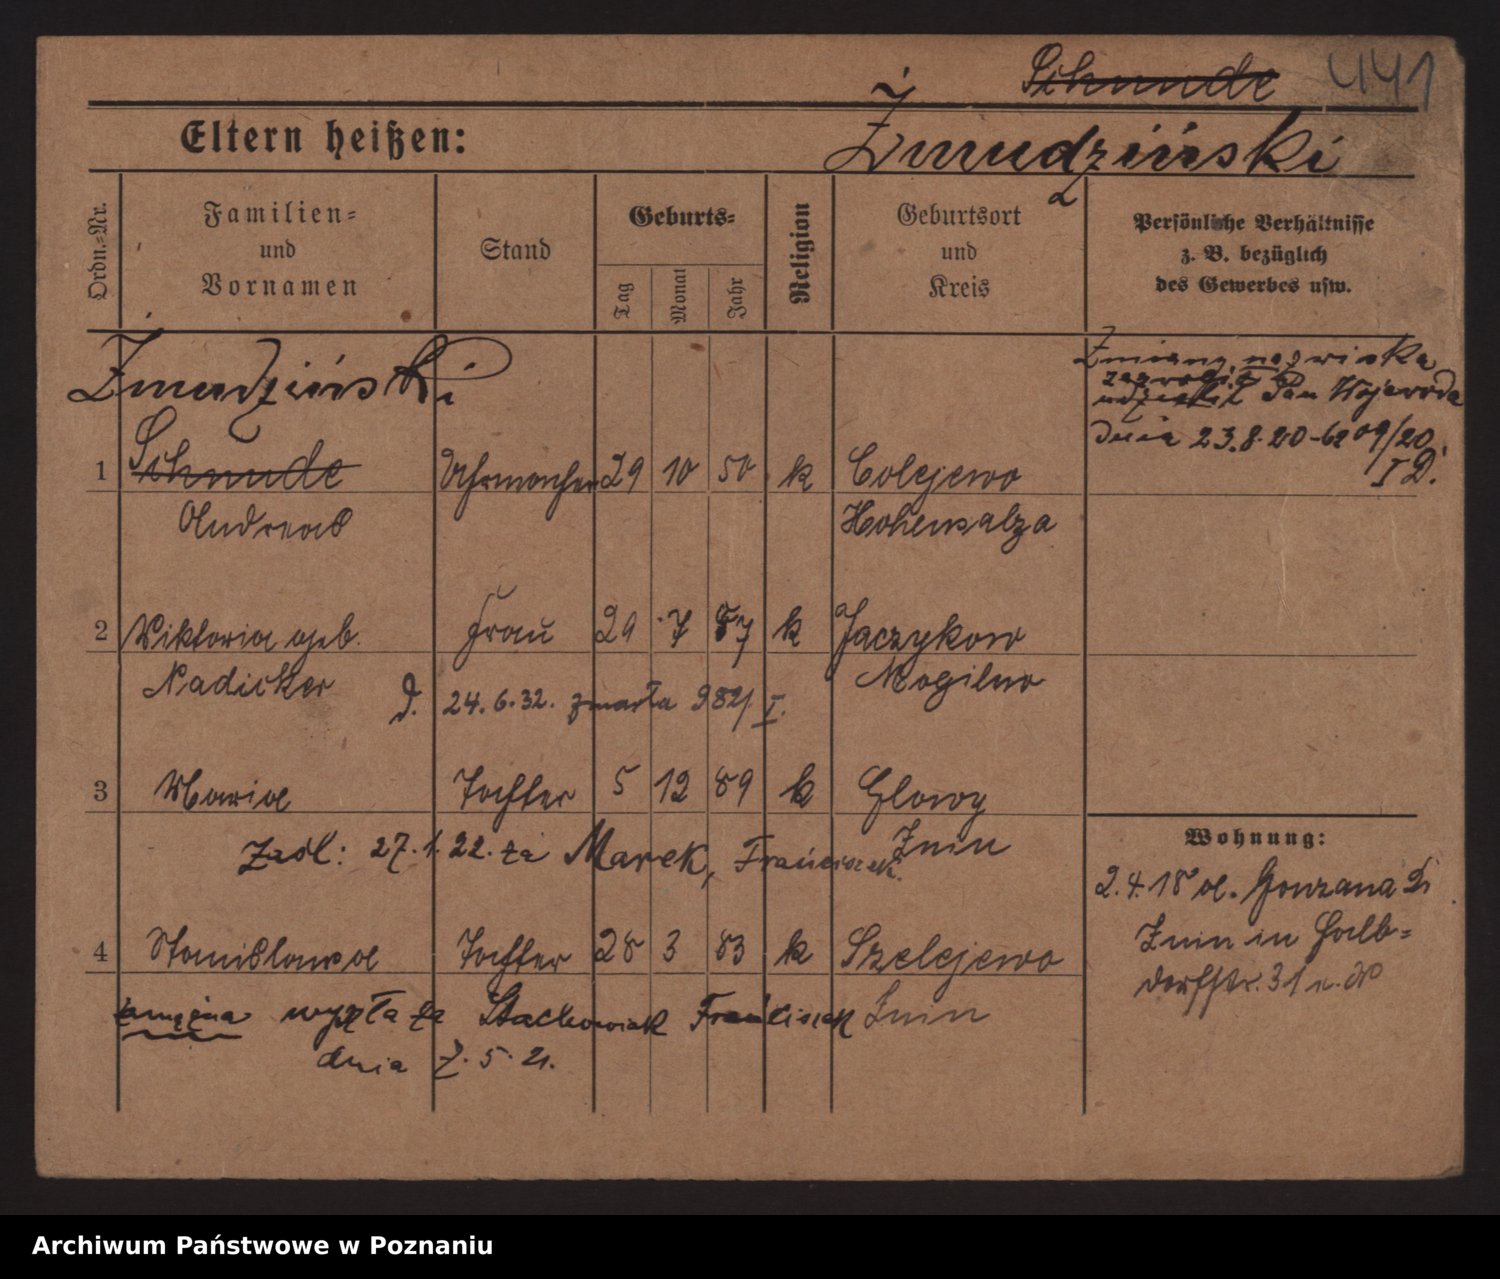 Schmude 441
Eltern heißen:
Żmudziński
Ordn.=Nr.
Familien=
und
Vornamen
Stand
Geburts=
Tag
Monat
Jahr
Religion
Geburtsort
und
Kreis
Persönliche Verhältnisse
z. B. bezüglich
des Gewerbes usw.
Żmudziński
Zmianę nazwiska
udzielił Pan Wojewoda
dnia 23.8.20
I D.
1 Schmude Uhrmacher 29 10 50 k Colejewo
Andreas Hohensalza
2 Viktoria geb. Frau 29 7 57 k Jaczykow
Nadicker Mogilno
d. 24.6.32. zmarła 982/I.
3 Maria Tochter 5 12 89 k Glowy
Znin
zasl: 27.1.22. za Marek, Franciszek.
4 Stanislawa Tochter 28 3 83 k Szelejewo
Znin
zamężna wyszła za Stachowiak Franciszek
dnia 7. 5. 21.
Wohnung:
2.4.18 a. Gonzawa Kr
Znin in Halb=
dorfstr. 31
Archiwum Państwowe w Poznaniu